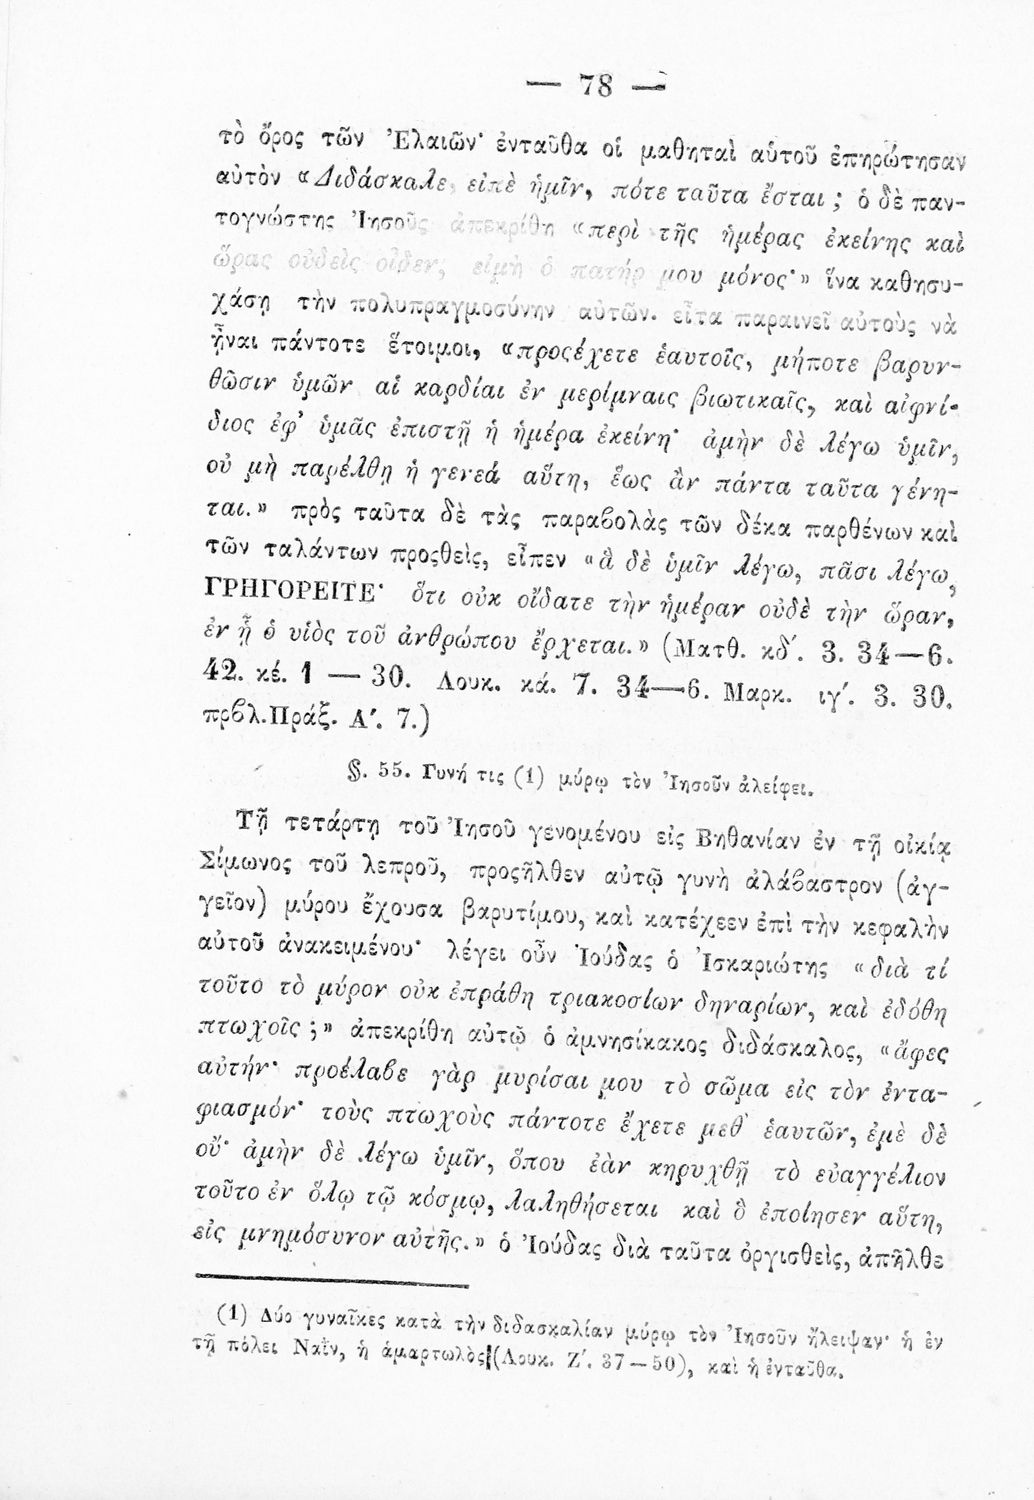 — 78 —
τὸ ὄρος τῶν Ἐλαιῶν· ἐνταῦθα οἱ μαθηταὶ αὐτοῦ ἐπηρώτησαν
αὐτὸν «Διδάσκαλε, εἰπὲ ἡμῖν, πότε ταῦτα ἔσται ; ὁ δὲ παν-
τογνώστης Ἰησοῦς ἀπεκρίθη «περὶ τῆς ἡμέρας ἐκείνης καὶ
ὥρας οὐδεὶς οἶδεν, εἰμὴ ὁ πατήρ μου μόνος·» ἵνα καθησυ-
χάσῃ τὴν πολυπραγμοσύνην αὐτῶν. εἶτα παραινεῖ αὐτοὺς νὰ
ἦναι πάντοτε ἕτοιμοι, «προςέχετε ἑαυτοῖς, μήποτε βαρυν-
θῶσιν ὑμῶν αἱ καρδίαι ἐν μερίμναις βιωτικαῖς, καὶ αἰφνί-
διος ἐφ’ ὑμᾶς ἐπιστῇ ἡ ἡμέρα ἐκείνη· ἀμὴν δὲ λέγω ὑμῖν,
οὐ μὴ παρέλθῃ ἡ γενεά αὕτη, ἕως ἂν πάντα ταῦτα γένη-
ται.» πρὸς ταῦτα δὲ τὰς παραβολὰς τῶν δέκα παρθένων καὶ
τῶν ταλάντων προςθεὶς, εἶπεν «ἃ δὲ ὑμῖν λέγω, πᾶσι λέγω,
ΓΡΗΓΟΡΕΙΤΕ· ὅτι οὐκ οἴδατε τὴν ἡμέραν οὐδὲ τὴν ὥραν,
ἐν ᾗ ὁ υἱὸς τοῦ ἀνθρώπου ἔρχεται.» (Ματθ. κδ´. 3. 34—6.
42. κέ. 1 — 30. Λουκ. κά. 7. 34—6. Μαρκ. ιγ´. 3. 30.
πρβλ.Πράξ. Α´. 7.)
§. 55. Γυνή τις (1) μύρῳ τὸν Ἰησοῦν ἀλείφει.
Τῇ τετάρτῃ τοῦ Ἰησοῦ γενομένου εἰς Βηθανίαν ἐν τῇ οἰκίᾳ
Σίμωνος τοῦ λεπροῦ, προςῆλθεν αὐτῷ γυνὴ ἀλάβαστρον (ἀγ-
γεῖον) μύρου ἔχουσα βαρυτίμου, καὶ κατέχεεν ἐπὶ τὴν κεφαλὴν
αὐτοῦ ἀνακειμένου· λέγει οὖν Ἰούδας ὁ Ἰσκαριώτης «διὰ τί
τοῦτο τὸ μύρον οὐκ ἐπράθη τριακοσίων δηναρίων, καὶ ἐδόθη
πτωχοῖς ;» ἀπεκρίθη αὐτῷ ὁ ἀμνησίκακος διδάσκαλος, «ἄφες
αὐτήν· προέλαβε γὰρ μυρίσαι μου τὸ σῶμα εἰς τὸν ἐντα-
φιασμόν· τοὺς πτωχοὺς πάντοτε ἔχετε μεθ’ ἑαυτῶν, ἐμὲ δὲ
οὔ· ἀμὴν δὲ λέγω ὑμῖν, ὅπου ἐὰν κηρυχθῇ τὸ εὐαγγέλιον
τοῦτο ἐν ὅλῳ τῷ κόσμῳ, λαληθήσεται καὶ ὃ ἐποίησεν αὕτη,
εἰς μνημόσυνον αὐτῆς.» ὁ Ἰούδας διὰ ταῦτα ὀργισθεὶς, ἀπῆλθε
(1) Δύο γυναῖκες κατὰ τὴν διδασκαλίαν μύρῳ τὸν Ἰησοῦν ἤλειψαν· ἡ ἐν
τῇ πόλει Ναῒν, ἡ ἁμαρτωλὸς (Λουκ. Ζ´. 37—50), καὶ ἡ ἐνταῦθα.